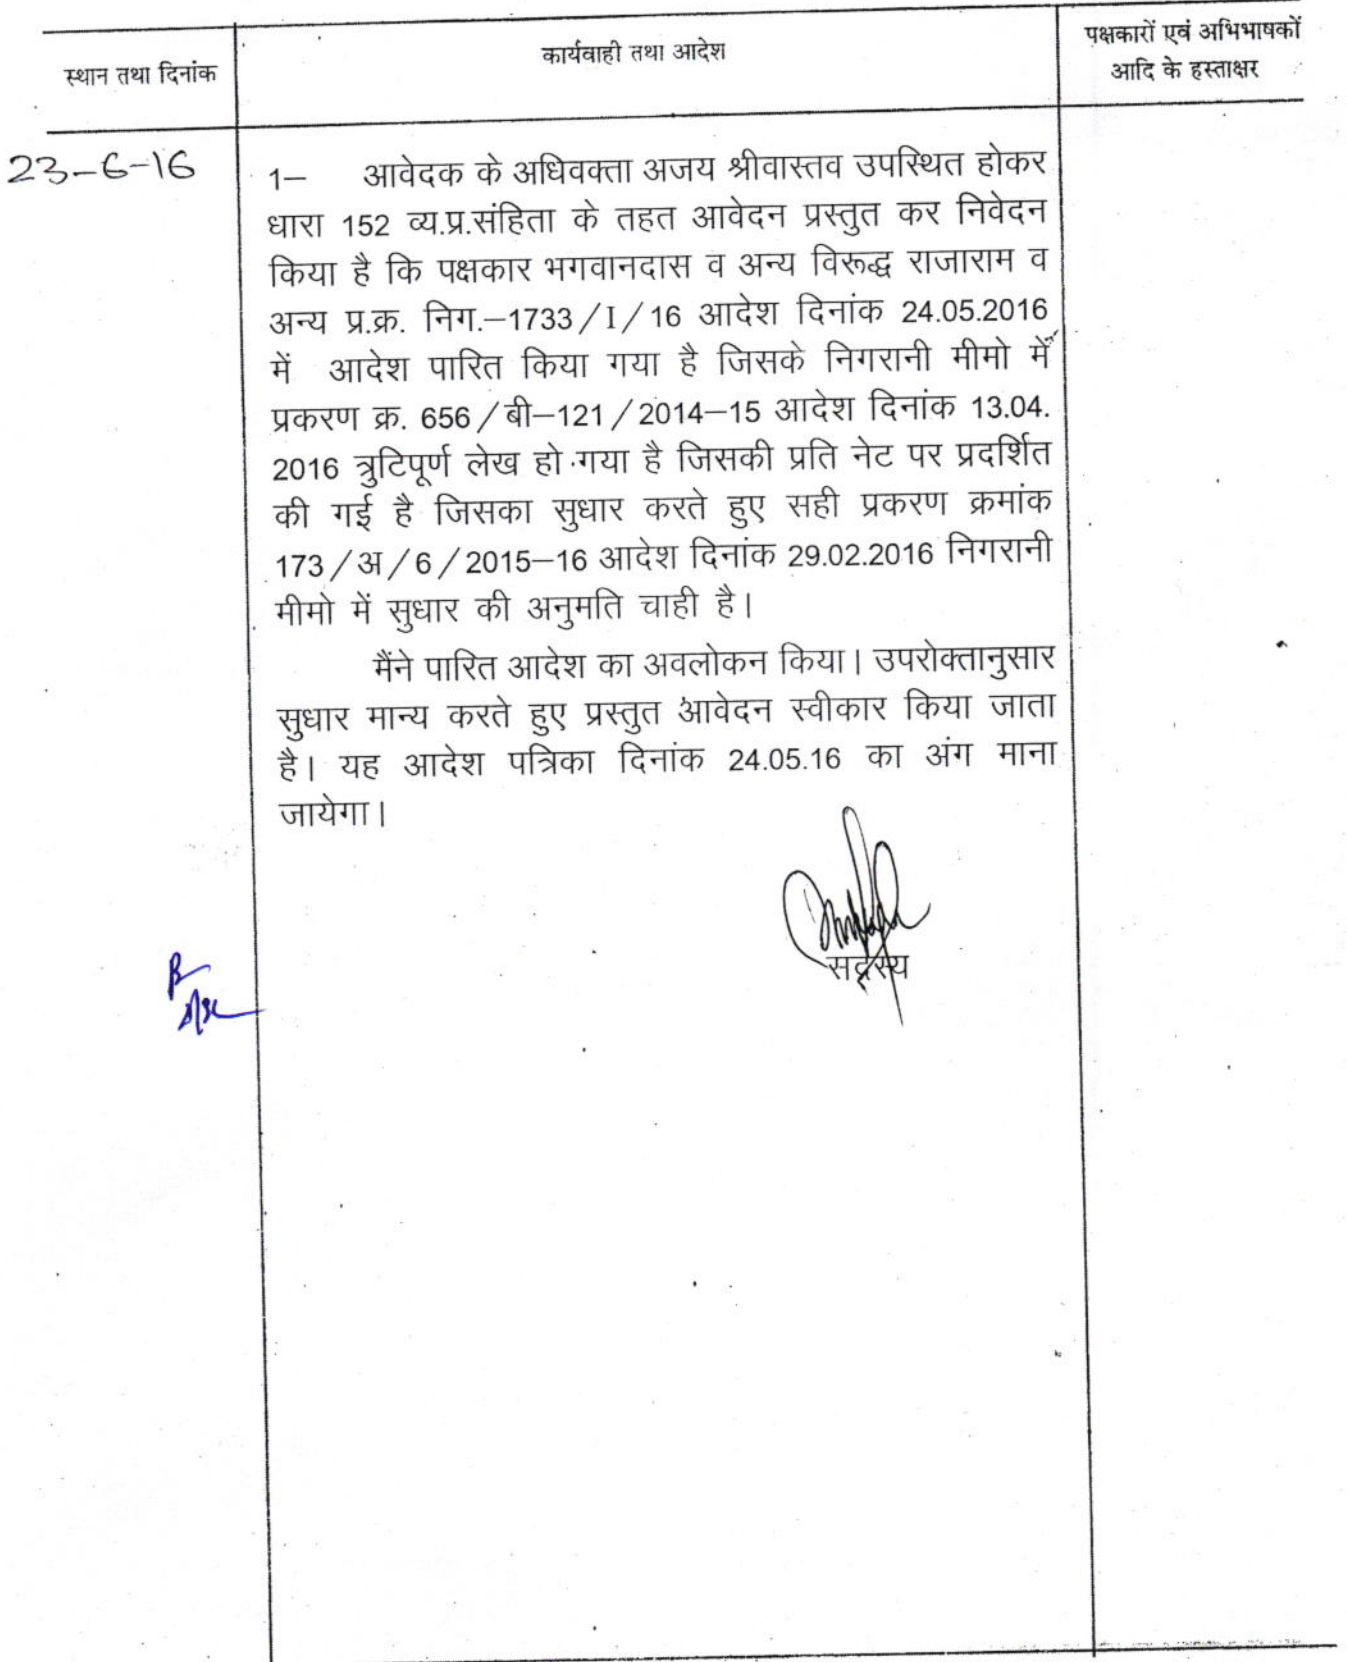 स्थान तथा दिनांक
कार्यवाही तथा आदेश
पक्षकारों एवं अभिभाषकों
आदि के हस्ताक्षर
23-6-16
1– आवेदक के अधिवक्ता अजय श्रीवास्तव उपस्थित होकर
धारा 152 व्य.प्र.संहिता के तहत आवेदन प्रस्तुत कर निवेदन
किया है कि पक्षकार भगवानदास व अन्य विरूद्ध राजाराम व
अन्य प्र.क्र. निग.–1733/I/16 आदेश दिनांक 24.05.2016
में आदेश पारित किया गया है जिसके निगरानी मीमो में
प्रकरण क्र. 656/बी–121/2014–15 आदेश दिनांक 13.04.
2016 त्रुटिपूर्ण लेख हो गया है जिसकी प्रति नेट पर प्रदर्शित
की गई है जिसका सुधार करते हुए सही प्रकरण क्रमांक
173/अ/6/2015–16 आदेश दिनांक 29.02.2016 निगरानी
मीमो में सुधार की अनुमति चाही है।
मैंने पारित आदेश का अवलोकन किया। उपरोक्तानुसार
सुधार मान्य करते हुए प्रस्तुत आवेदन स्वीकार किया जाता
है। यह आदेश पत्रिका दिनांक 24.05.16 का अंग माना
जायेगा।
सदस्य